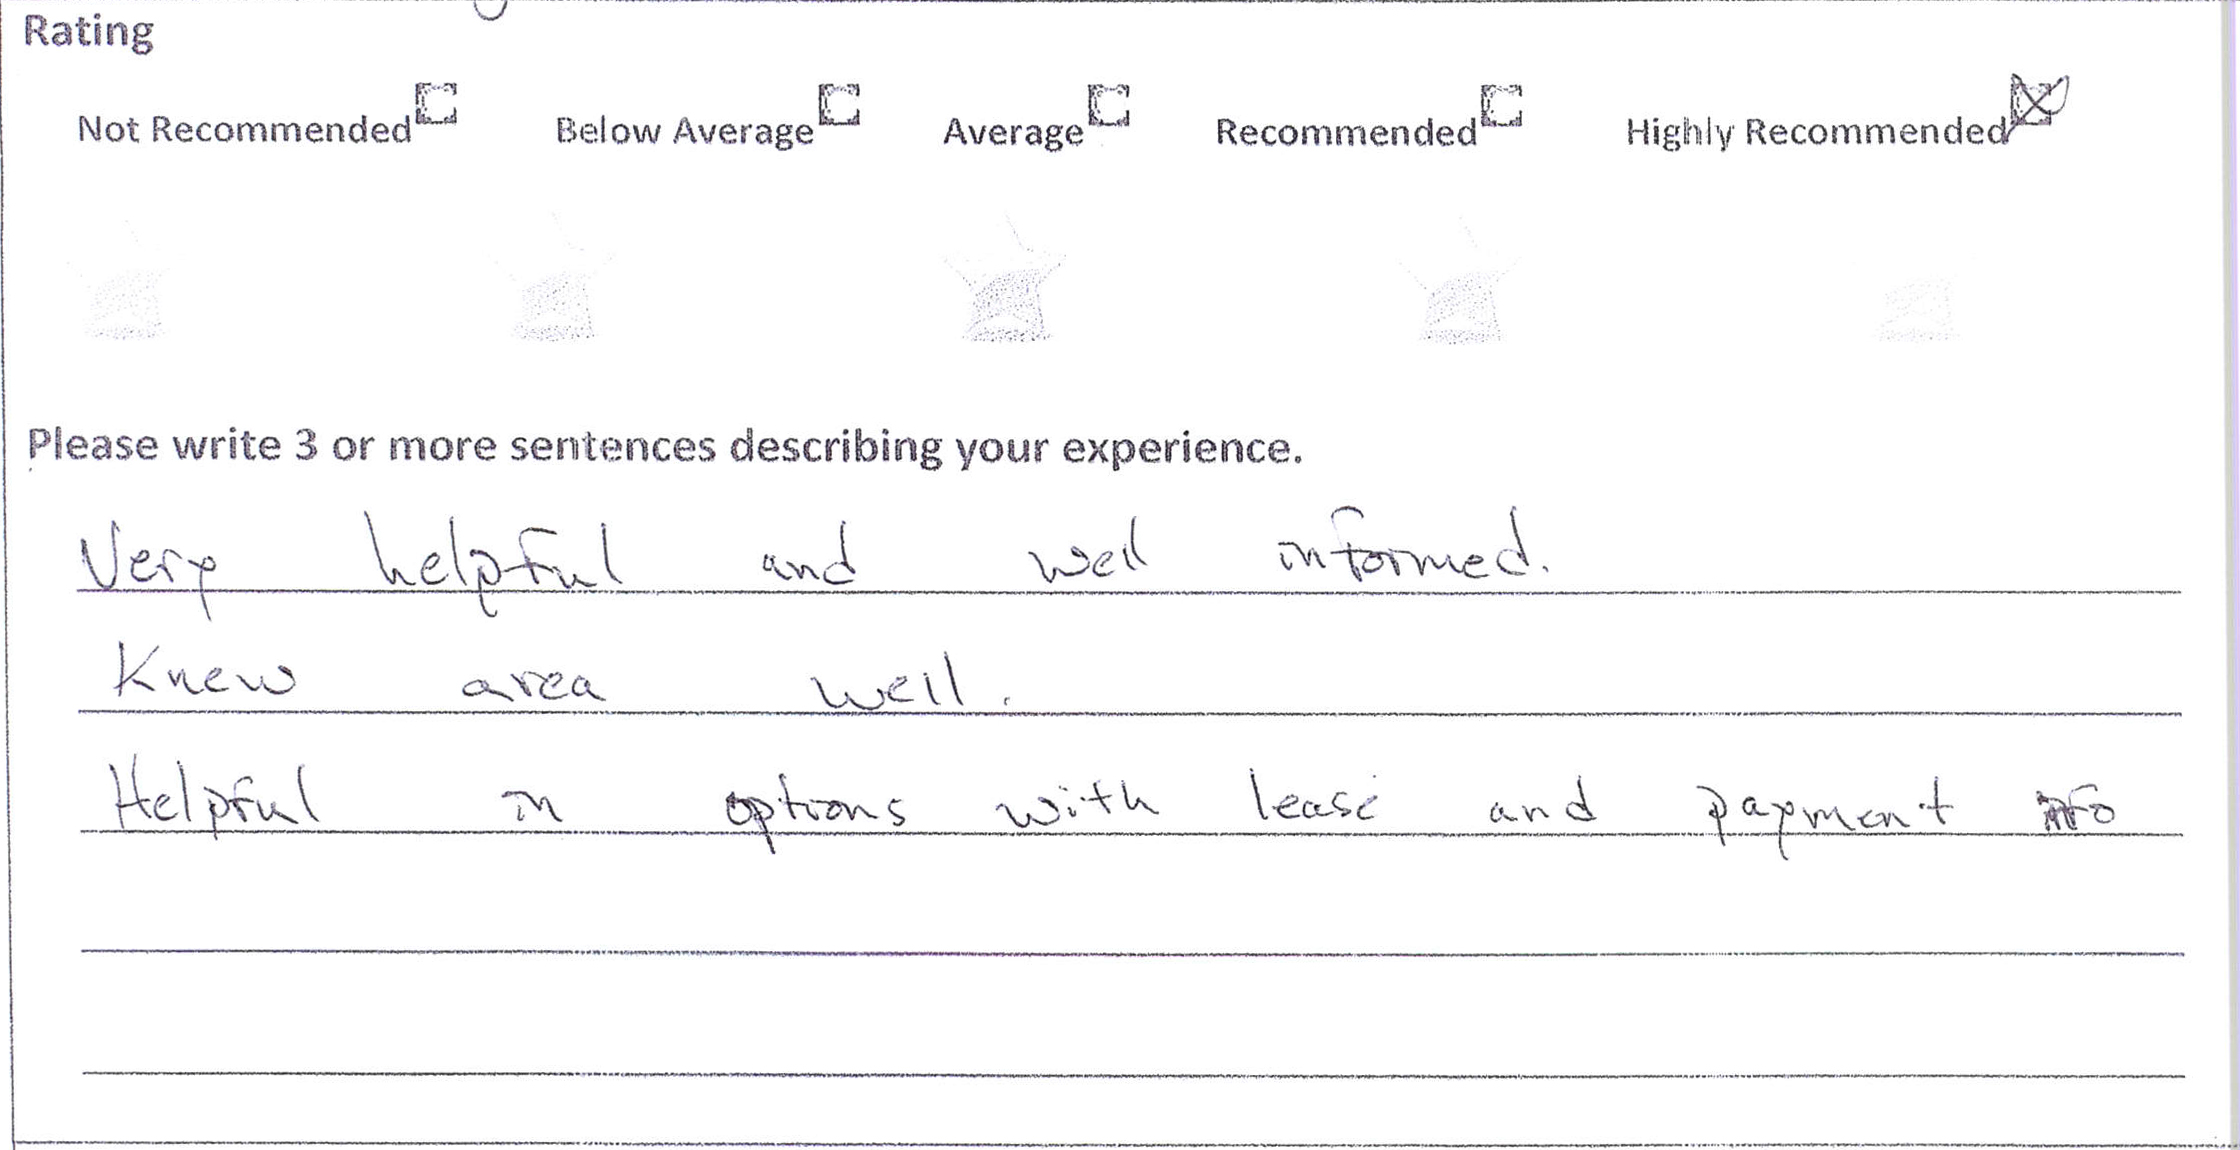 Rating
Not Recommended Below Average Average Recommended Highly Recommended
Please write 3 or more sentences describing your experience.
Very helpful and well informed.
Knew area well.
Helpful in options with lease and payment info